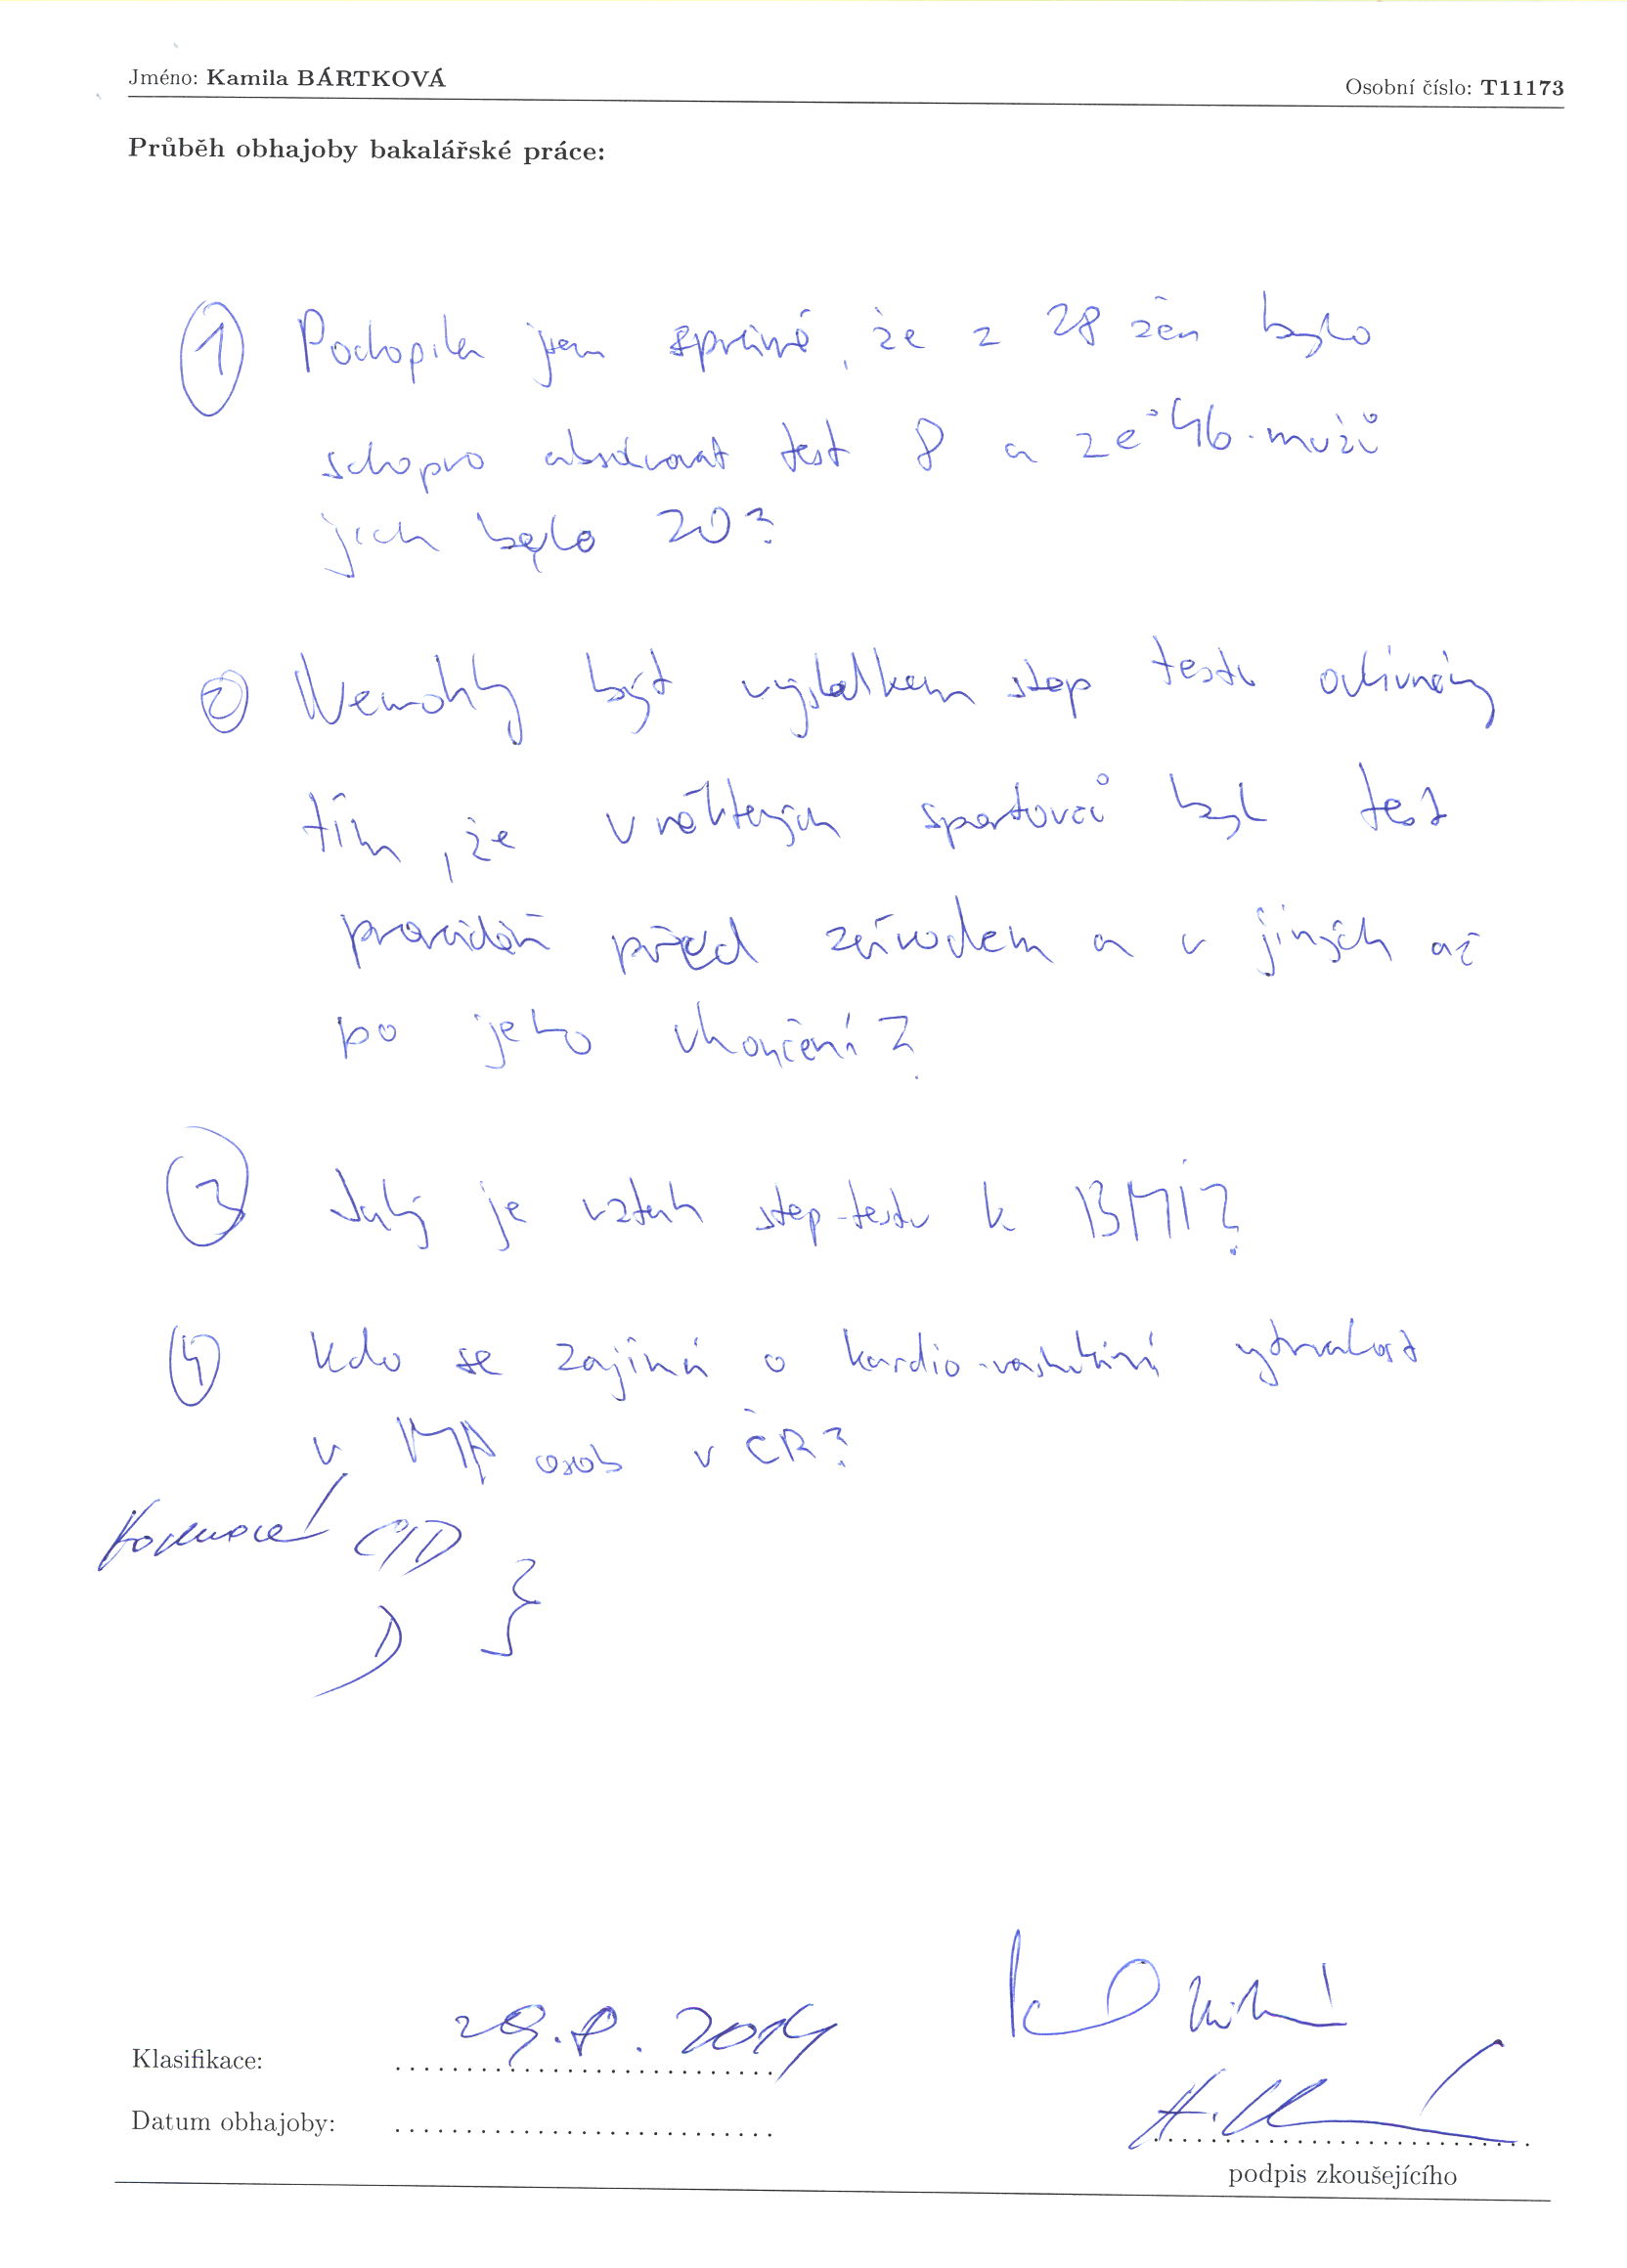 Jméno: Kamila BÁRTKOVÁ
Osobní číslo: T11173
Průběh obhajoby bakalářské práce:
① Pochopila jsem správně, že z 28 žen bylo
schopno absolvovat test 8 a ze 46 mužů
jich bylo 20?
② Nemohly být výsledkem step testu ovlivněny
tím, že u některých sportovců byl test
prováděn před závodem a u jiných až
po jeho ukončení?
③ Jaký je vztah step-testu k BMI?
④ Kdo se zajímá o kardio-vaskulární vytrvalost
u MP osob v ČR?
Hodnocení C/D
D }
Klasifikace: 29.8.2014
Datum obhajoby:
podpis zkoušejícího